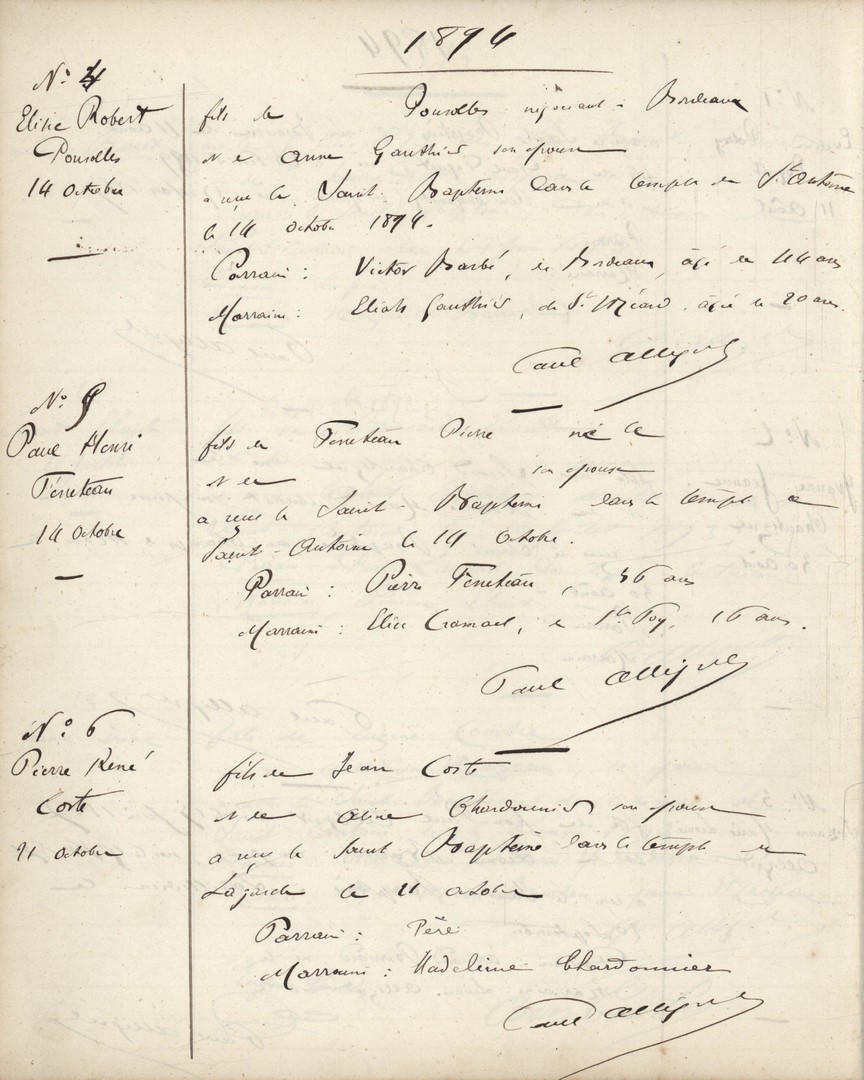 1894
N° 4
Elisée Robert
Pouselles
14 Octobre
fils de Pouselles négociant à Bordeaux
et de Anne Gauthier son épouse
a reçu le Saint-Baptême dans le temple de St Antoine
le 14 Octobre 1894.
Parrain : Victor Barbé, de Bordeaux, âgé de 44 ans
Marraine : Gauthier, de St Méard, âgée de 20 ans.
Paul
N° 5
Paul Henri
Féneteau
14 Octobre
fils de Féneteau Pierre né le
et de son épouse
a reçu le Saint-Baptême dans le temple de
Saint-Antoine le 14 Octobre.
Parrain : Pierre Féneteau, 36 ans
Marraine : Elise, de Ste Foy, 16 ans.
Paul
N° 6
Pierre René
Coste
21 Octobre
fils de Jean Coste
et de Aline Chardonnier son épouse
a reçu le Saint Baptême dans le temple de
Lagarde le 21 octobre
Parrain : Père
Marraine : Madeleine Chardonnier
Paul